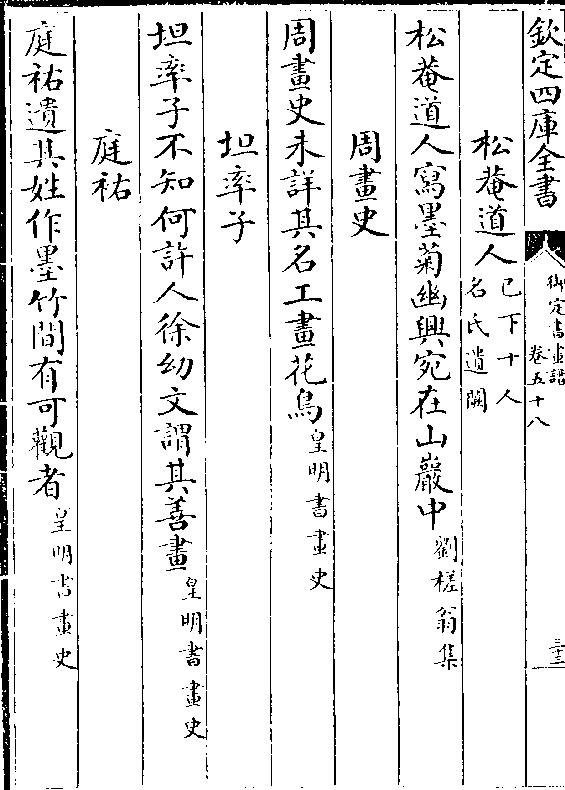 欽定四庫全書
御定書畫譜
卷五十八
三十三
松菴道人已下十人名氏遺闕
松菴道人寫墨菊幽興宛在山巖中劉槎翁集
周畫史
周畫史未詳其名工畫花鳥皇明書畫史
坦率子
坦率子不知何許人徐幼文謂其善畫皇明書畫史
庭祐
庭祐遺其姓作墨竹間有可觀者皇明書畫史